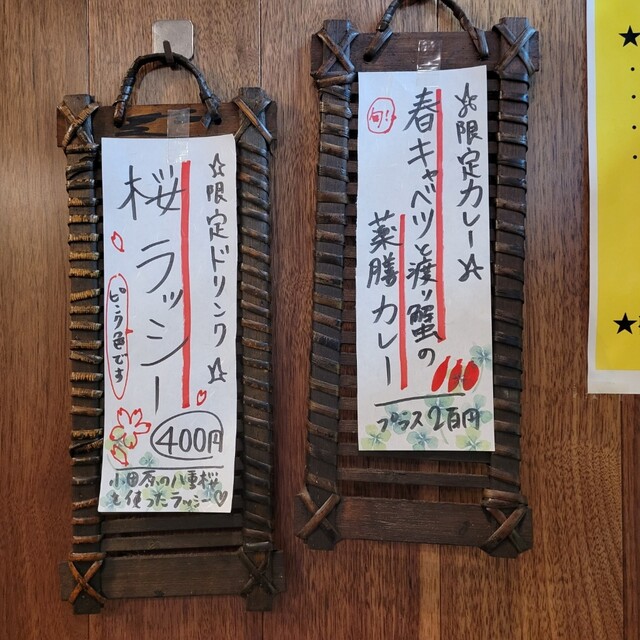 ☆限定カレー☆
旬!
春キャベツと渡り蟹の
薬膳カレー
プラス2百円
☆限定ドリンク☆
桜ラッシー
ピンク色です
400円
小田原の八重桜
を使ったラッシー♡
★
★